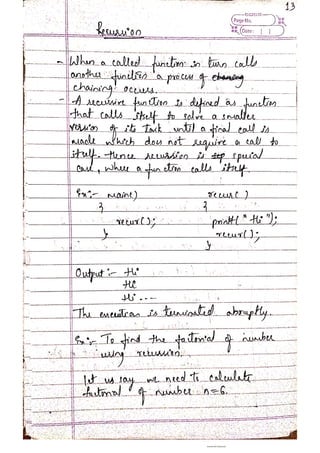 13
Page No.
Date: | |
Recursion
- When a called function in turn calls
another function a process of chaining
chaining occurs.
- A recursive function is defined as function
that calls itself to solve a smaller
version of its task until a final call is
made which does not require a call to
itself. Hence recursion is sep special
case, where a function calls itself.
Ex:- main() recur()
{ {
recur(); printf("Hi");
} recur();
}
Output :- Hi
Hi
Hi ...
The execution is terminated abruptly.
Ex:- To find the factorial of number
using recursion.
let us say we need to calculate
factorial of number n=6.